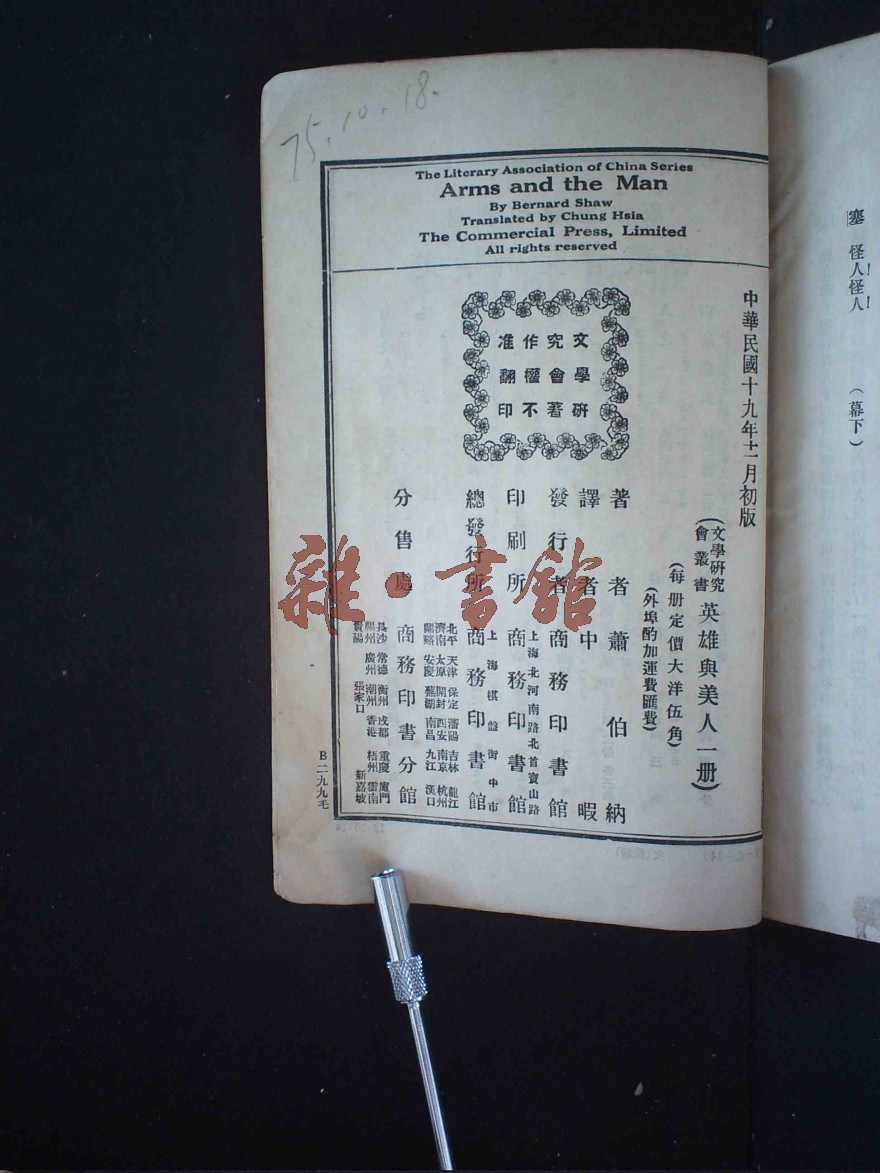 塞 怪人!怪人!
(幕下)
75.10.18.
The Literary Association of China Series
Arms and the Man
By Bernard Shaw
Translated by Chung Hsia
The Commercial Press, Limited
All rights reserved
中華民國十九年十二月初版
(文學研究會叢書)英雄與美人一册)
(每册定價大洋伍角)
(外埠酌加運費匯費)
文學研
究會著
作權不
准翻印
著者 蕭伯納
譯者 中暇
發行者 商務印書館
上海北河南路北首寶山路
印刷所 商務印書館
上海棋盤街中市
總發行所 商務印書館
分售處 商務印書分館
北平 天津 保定 瀋陽 吉林 龍江
濟南 太原 開封 西安 南京 杭州
蘭谿 安慶 蕪湖 南昌 九江 漢口
長沙 常德 衡州 成都 重慶 廈門
福州 廣州 潮州 香港 梧州 雲南
貴陽 張家口 新嘉坡
B二九九毛
雜·書館